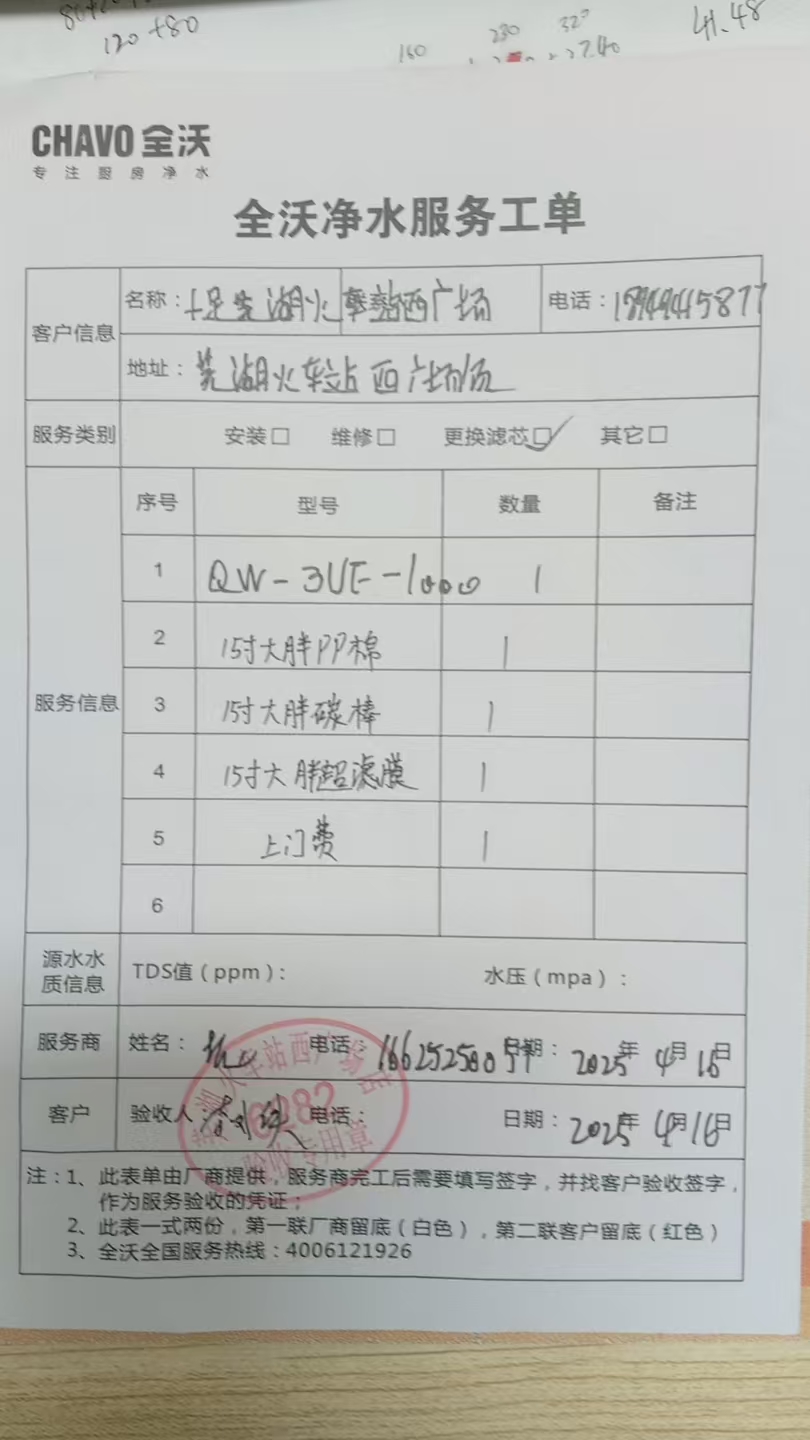 120+80
160
280
320
41.48
CHAVO 全沃
专注厨房净水
全沃净水服务工单
客户信息
名称：十足芜湖火车站西广场 电话：
地址：芜湖火车站西广场店
服务类别 安装□ 维修□ 更换滤芯□✓ 其它□
服务信息
序号 型号 数量 备注
1 QW-3UF-1000 1
2 15寸大胖PP棉 1
3 15寸大胖碳棒 1
4 15寸大胖超滤膜 1
5 上门费 1
6
源水水质信息 TDS值（ppm）： 水压（mpa）：
服务商 姓名： 电话： 日期：2025年4月16日
客户 验收人 电话： 日期：2025年4月16日
火车站西广场店
验收专用章
注：1、此表单由厂商提供，服务商完工后需要填写签字，并找客户验收签字，
作为服务验收的凭证；
2、此表一式两份，第一联厂商留底（白色），第二联客户留底（红色）
3、全沃全国服务热线：4006121926